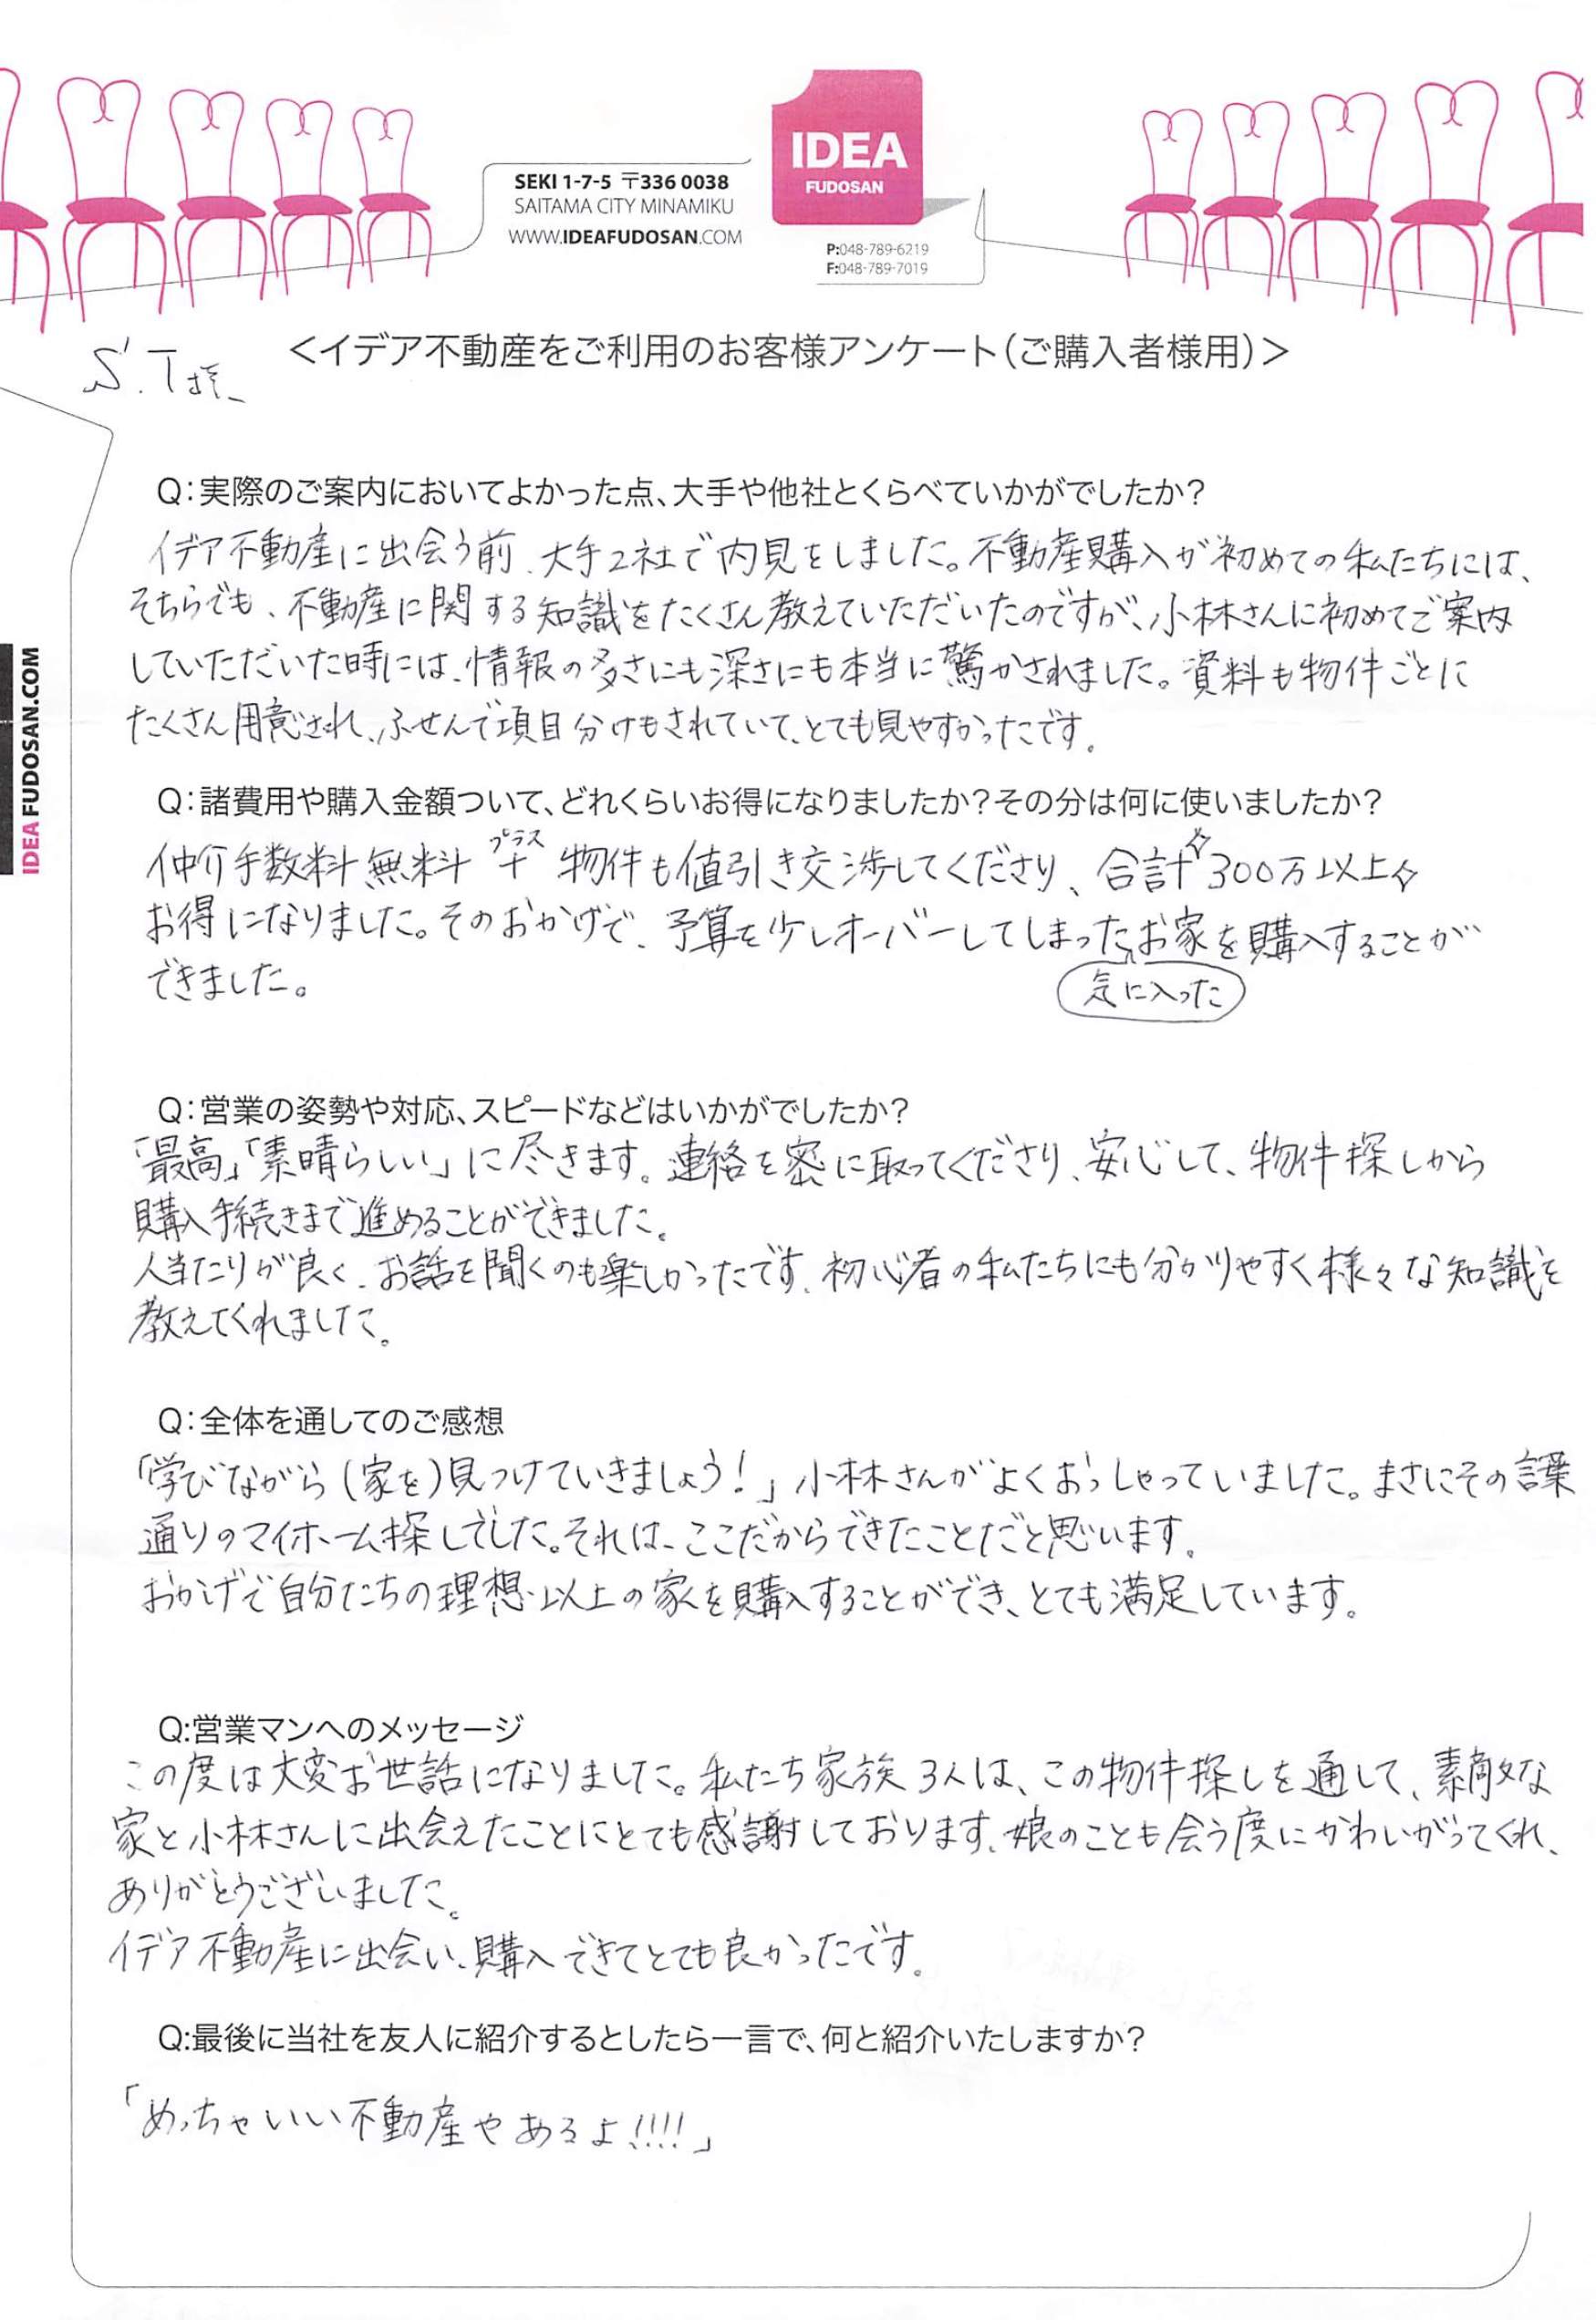 IDEA
FUDOSAN
SEKI 1-7-5 〒336 0038
SAITAMA CITY MINAMIKU
WWW.IDEAFUDOSAN.COM
P:048-789-6219
F:048-789-7019
S.T様
＜イデア不動産をご利用のお客様アンケート(ご購入者様用)＞
IDEA FUDOSAN.COM
Q:実際のご案内においてよかった点、大手や他社とくらべていかがでしたか?
イデア不動産に出会う前、大手2社で内見をしました。不動産購入が初めての私たちには、
そちらでも、不動産に関する知識をたくさん教えていただいたのですが、小林さんに初めてご案内
していただいた時には、情報の多さにも深さにも本当に驚かされました。資料も物件ごとに
たくさん用意され、ふせんで項目分けもされていて、とても見やすかったです。
Q:諸費用や購入金額ついて、どれくらいお得になりましたか?その分は何に使いましたか?
プラス
仲介手数料無料 + 物件も値引き交渉してくださり、合計✧300万以上✧
お得になりました。そのおかげで、予算を少しオーバーしてしまったお家を購入することが
気に入った
できました。
Q:営業の姿勢や対応、スピードなどはいかがでしたか?
「最高」「素晴らしい」に尽きます。連絡を密に取ってくださり、安心して、物件探しから
購入手続きまで進めることができました。
人当たりが良く、お話を聞くのも楽しかったです。初心者の私たちにも分かりやすく様々な知識を
教えてくれました。
Q:全体を通してのご感想
「学びながら(家を)見つけていきましょう!」小林さんがよくおっしゃっていました。まさにその言葉
通りのマイホーム探しでした。それは、ここだからできたことだと思います。
おかげで自分たちの理想以上の家を購入することができ、とても満足しています。
Q:営業マンへのメッセージ
この度は大変お世話になりました。私たち家族3人は、この物件探しを通して、素敵な
家と小林さんに出会えたことにとても感謝しております。娘のことも会う度にかわいがってくれ、
ありがとうございました。
イデア不動産に出会い、購入できてとても良かったです。
Q:最後に当社を友人に紹介するとしたら一言で、何と紹介いたしますか?
「めっちゃいい不動産やあるよ!!!!」